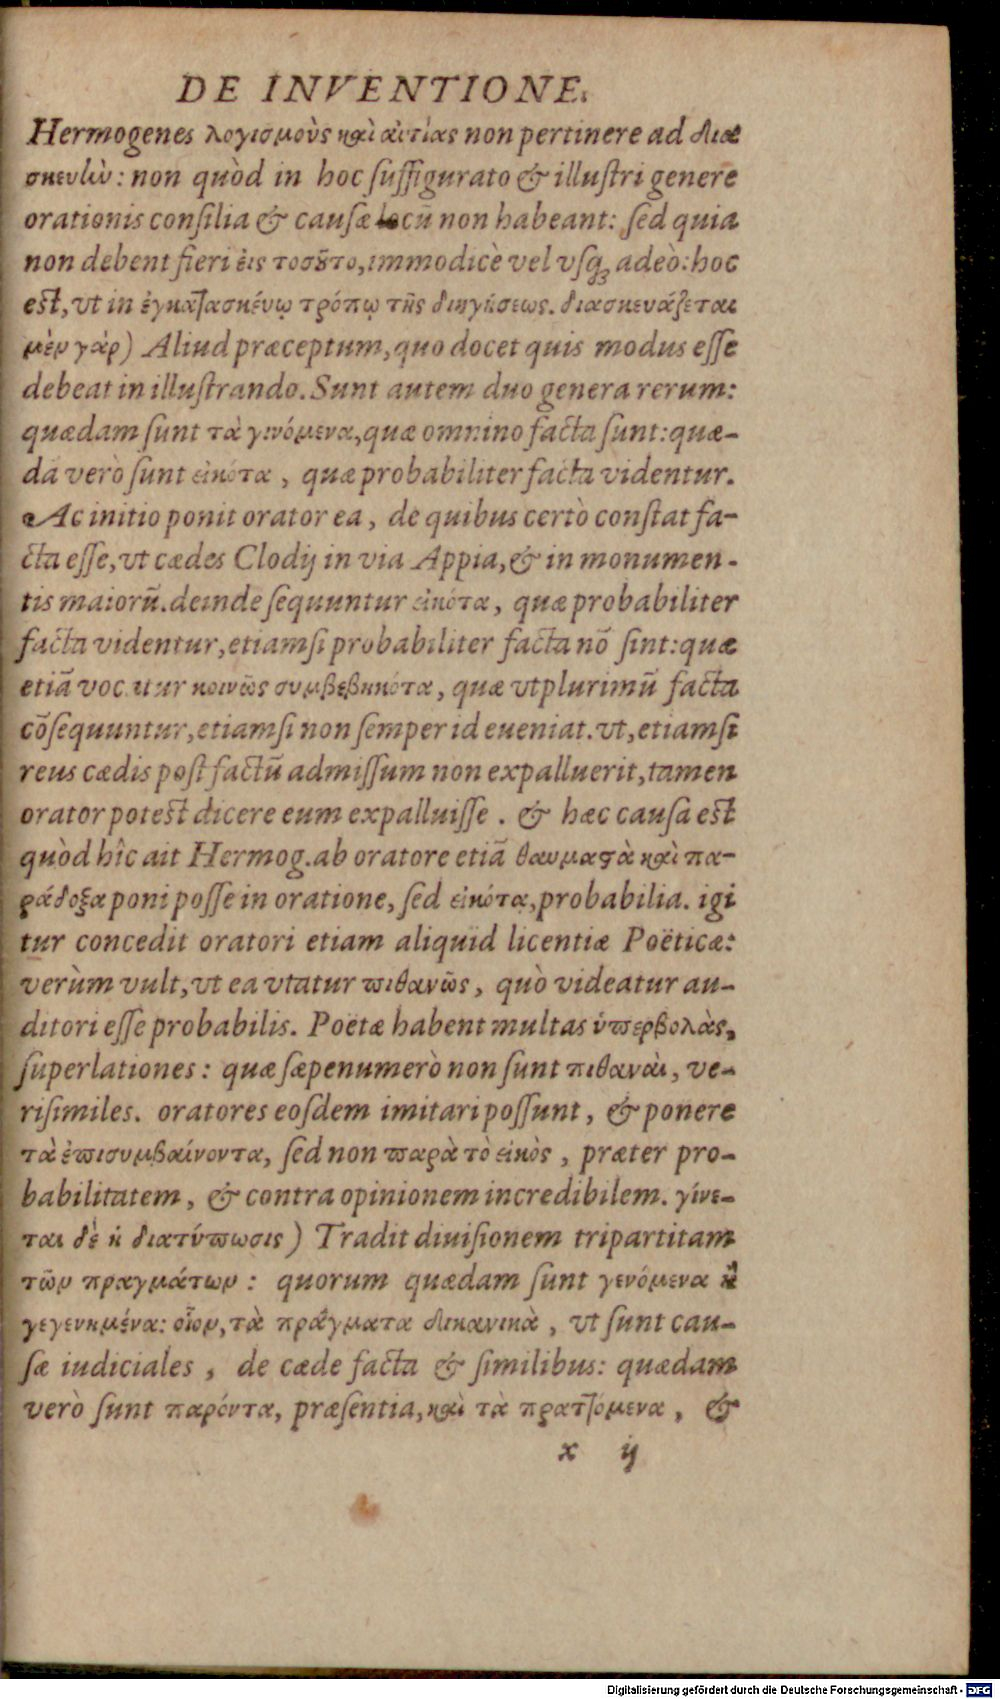 DE INVENTIONE.
Hermogenes λογισμοὺς καὶ αἰτίας non pertinere ad δια
σκευὴν: non quòd in hoc suffigurato & illustri genere
orationis consilia & causæ locū non habeant: sed quia
non debent fieri εἰς τοσοῦτο, immodicè vel vsq; adeò: hoc
est, vt in ἐγκατασκεύῳ τρόπῳ τῆς διηγήσεως. διασκευάζεται
μὲν γὰρ) Aliud præceptum, quo docet quis modus esse
debeat in illustrando. Sunt autem duo genera rerum:
quædam sunt τὰ γινόμενα, quæ omnino facta sunt: quæ-
dā verò sunt εἰκότα, quæ probabiliter facta videntur.
Ac initio ponit orator ea, de quibus certò constat fa-
cta esse, vt cædes Clodij in via Appia, & in monumen-
tis maiorū. deinde sequuntur εἰκότα, quæ probabiliter
facta videntur, etiamsi probabiliter facta nō sint: quæ
etiā vocantur κοινῶς συμβεβηκότα, quæ vtplurimū facta
cōsequuntur, etiamsi non semper id eueniat. vt, etiamsi
reus cædis post factū admissum non expalluerit, tamen
orator potest dicere eum expalluisse. & hæc causa est
quòd hîc ait Hermog. ab oratore etiā θαυμαστὰ καὶ πα-
ράδοξα poni posse in oratione, sed εἰκότα, probabilia. igi
tur concedit oratori etiam aliquid licentiæ Poëticæ:
verùm vult, vt ea vtatur πιθανῶς, quò videatur au-
ditori esse probabilis. Poëtæ habent multas ὑπερβολὰς,
superlationes: quæ sæpenumerò non sunt πιθαναὶ, ve-
risimiles. oratores eosdem imitari possunt, & ponere
τὰ ἐπισυμβαίνοντα, sed non παρὰ τὸ εἰκὸς, præter pro-
babilitatem, & contra opinionem incredibilem. γίνε-
ται δὲ ἡ διατύπωσις) Tradit diuisionem tripartitam
τῶν πραγμάτων: quorum quædam sunt γενόμενα ἢ
γεγενημένα: οἷον, τὰ πράγματα δικανικὰ, vt sunt cau-
sæ iudiciales, de cæde facta & similibus: quædam
verò sunt παρόντα, præsentia, καὶ τὰ πραττόμενα, &
x ij
Digitalisierung gefördert durch die Deutsche Forschungsgemeinschaft - DFG